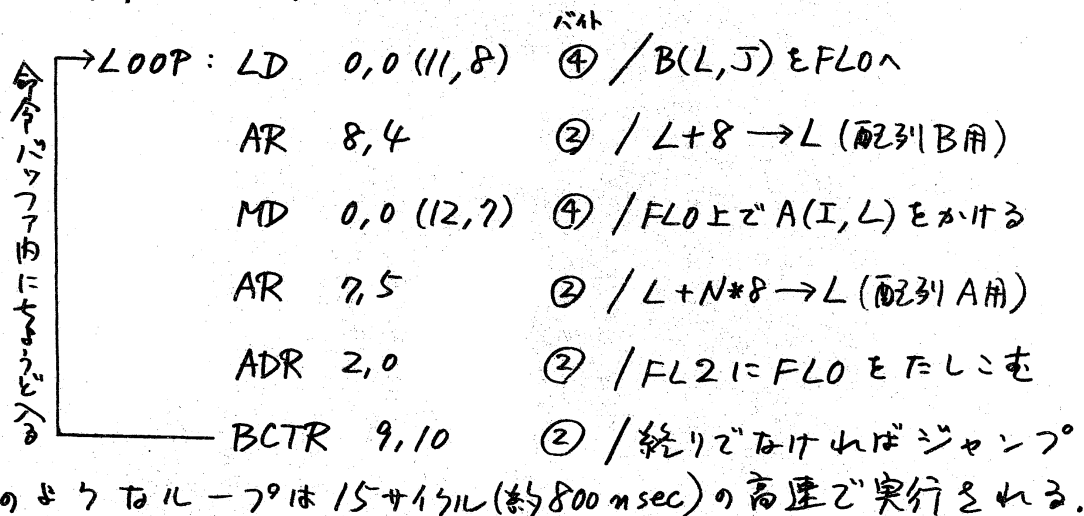 バイト
LOOP : LD 0,0 (11,8) ④ / B(L,J) をFL0へ
AR 8,4 ② / L+8 → L (配列B用)
MD 0,0 (12,7) ④ / FL0上でA(I,L)をかける
AR 7,5 ② / L+N*8 → L (配列A用)
ADR 2,0 ② / FL2にFL0をたしこむ
BCTR 9,10 ② / 終りでなければジャンプ
命令バッファ内にちょうど入る
のようなループは15サイクル(約800nsec)の高速で実行される.